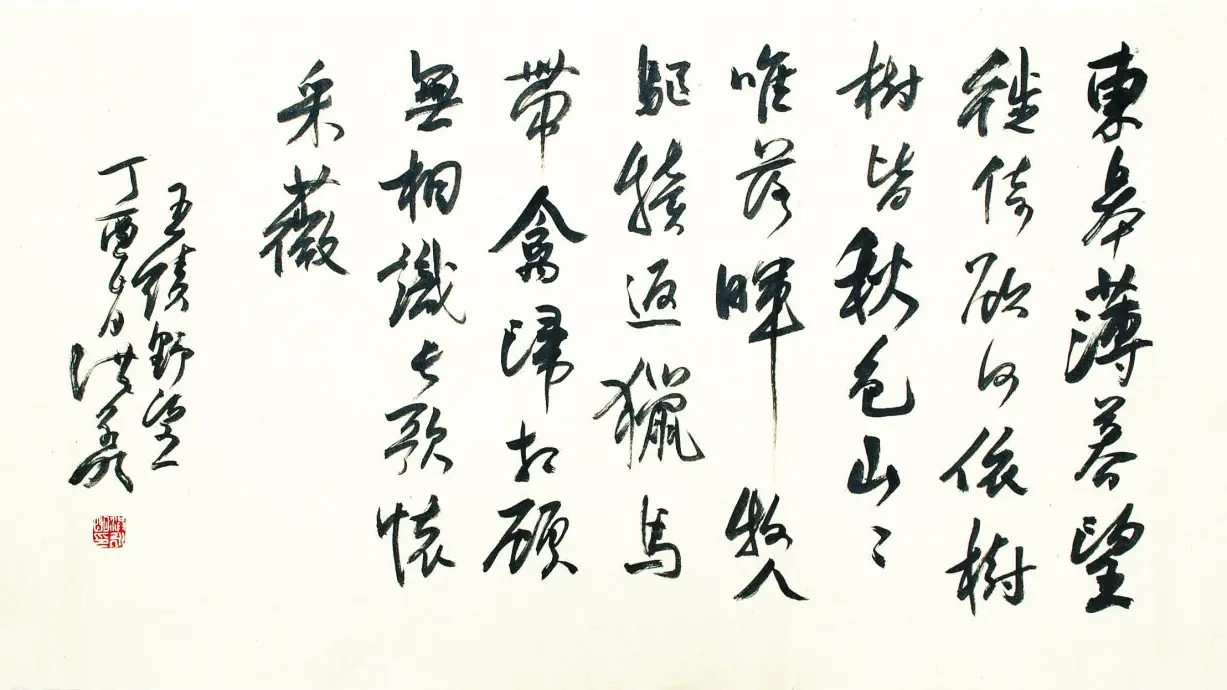 東皋薄暮望
徙倚欲何依樹
樹皆秋色山〻
唯落暉牧人
驅犢返獵馬
帶禽歸相顧
無相識長歌懷
采薇
王績野望
丁酉 月洪